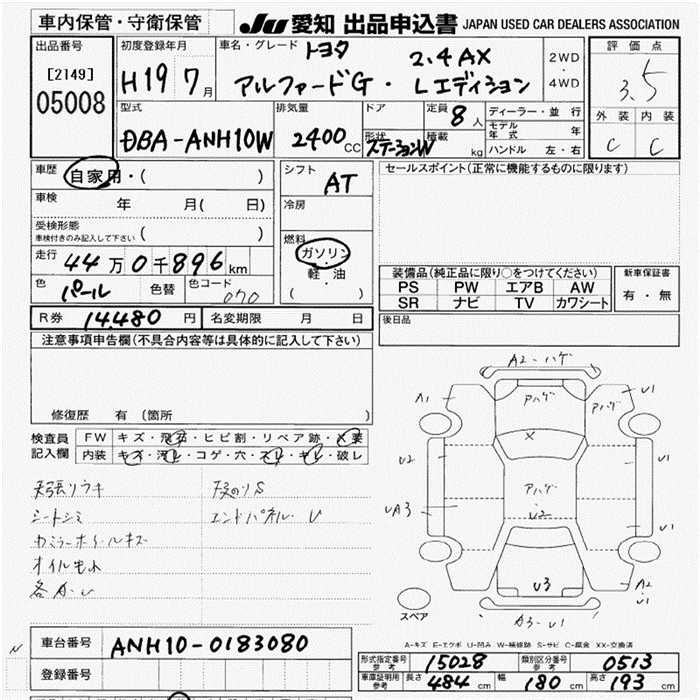 車内保管・守衛保管
JU 愛知 出品申込書 JAPAN USED CAR DEALERS ASSOCIATION
出品番号
[2149]
05008
初度登録年月
H19 7月
車名・グレード トヨタ 2.4AX
アルファードG・Lエディション
2WD
・
4WD
評価点
3.5
外装 内装
C C
型式
DBA-ANH10W
排気量
2400 CC
ドア
形状
ステーションW
定員 8人
積載 kg
ディーラー・並行
モデル年式 年
ハンドル 左・右
車歴 自家用・( )
車検 年 月( 日)
受検形態
車検付きのみ記入して下さい ( )
走行 44万0千896km
色 パール 色替 色コード 070
シフト AT
冷房
燃料
ガソリン
・
軽・油
( )
セールスポイント(正常に機能するものに限ります)
装備品(純正品に限り○をつけてください)
PS PW エアB AW
SR ナビ TV カワシート
新車保証書
有・無
R券 14,480円 名変期限 月 日
後日品
注意事項申告欄(不具合内容等は具体的に記入して下さい)
修復歴 有(箇所 )
検査員記入欄
FW キズ・飛石・ヒビ割・リペア跡・X要
内装 キズ・汚レ・コゲ・穴・スレ・キレ・破レ
天張りウキ
シートシミ
エンドパネル U
オイルもれ
A2-ハゲ
A1
アハゲ
アハゲ
U1
X
U2
U1
アハゲ
U2
UA3
U1
U3
A2
U1
A3-U
スペア
A-キズ E-エクボ U-凹み W-補修跡 S-サビ C-腐食 XX-交換済
車台番号 ANH10-0183080
登録番号
形式指定番号 参考 15028 類別区分番号 参考 0513
車庫証明用 参考 長さ 484cm 幅 180cm 高さ 193cm